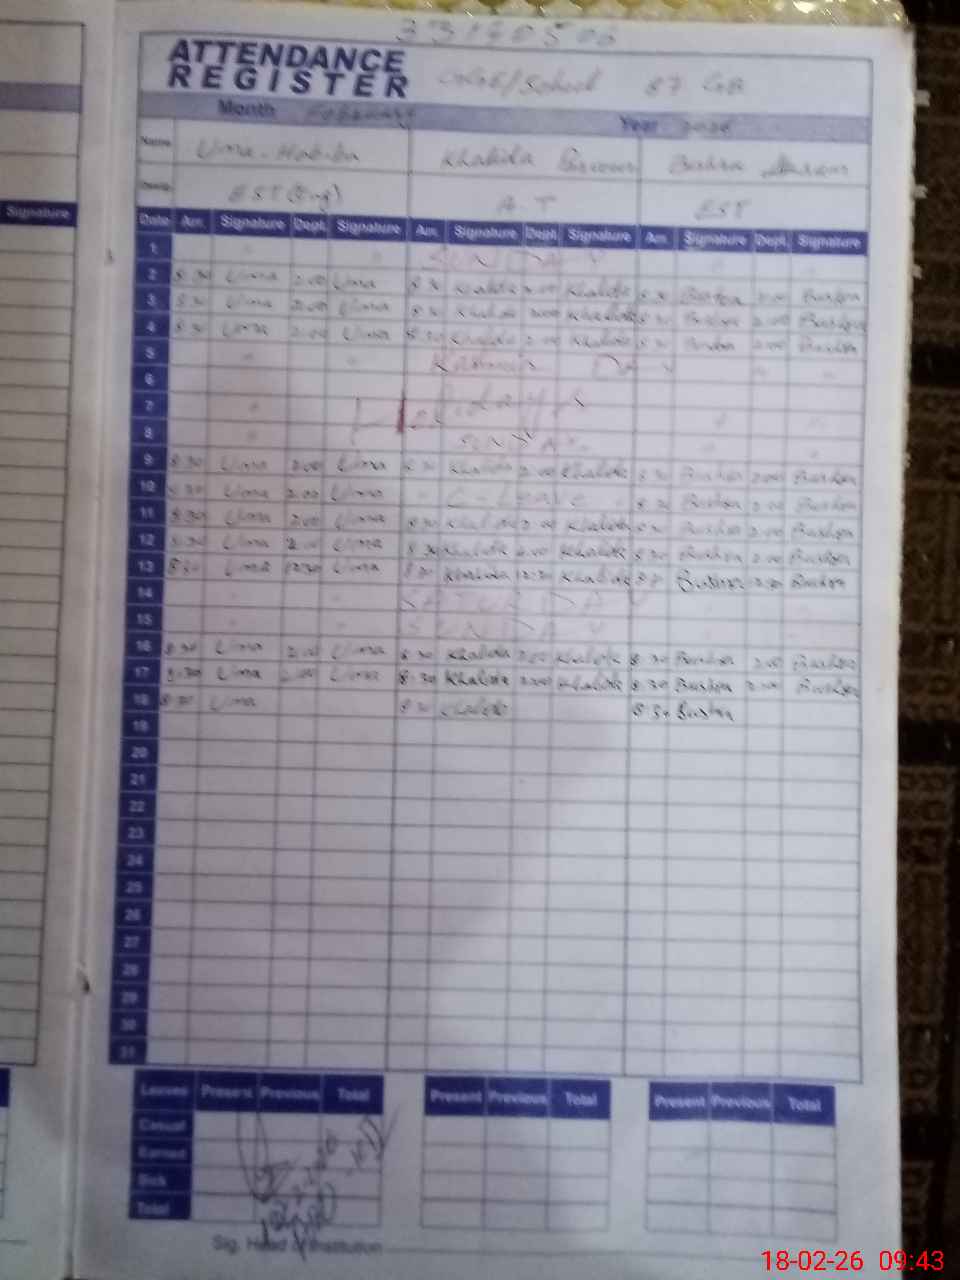 33170506
ATTENDANCE
REGISTER
Month February Year 2026
Name Uma-Habiba Khalida Bushra
EST (Eng) A.T EST
Signature
Date Arr. Signature Dept. Signature Arr. Signature Dept. Signature Arr. Signature Dept. Signature
1 SUNDAY
2 8:30 Uma 2:00 Uma 8:30 Khalida 2:00 Khalida 8:30 Bushra 2:00 Bushra
3 8:30 Uma 2:00 Uma 8:30 Khalida 2:00 Khalida 8:30 Bushra 2:00 Bushra
4 8:30 Uma 2:00 Uma 8:30 Khalida 2:00 Khalida 8:30 Bushra 2:00 Bushra
5 Kashmir DAY
6
7 Holidays
8 SUNDAY
9 8:30 Uma 2:00 Uma 8:30 Khalida 2:00 Khalida 8:30 Bushra 2:00 Bushra
10 8:30 Uma 2:00 Uma C-Leave 8:30 Bushra 2:00 Bushra
11 8:30 Uma 2:00 Uma 8:30 Khalida 2:00 Khalida 8:30 Bushra 2:00 Bushra
12 8:30 Uma 2:00 Uma 8:30 Khalida 2:00 Khalida 8:30 Bushra 2:00 Bushra
13 8:30 Uma 12:30 Uma 8:30 Khalida 12:30 Khalida 8:30 Bushra 12:30 Bushra
14 SATURDAY
15 SUNDAY
16 8:30 Uma 2:00 Uma 8:30 Khalida 2:00 Khalida 8:30 Bushra 2:00 Bushra
17 8:30 Uma 2:00 Uma 8:30 Khalida 2:00 Khalida 8:30 Bushra 2:00 Bushra
18 8:30 Uma 8:30 Khalida 8:30 Bushra
19
20
21
22
23
24
25
26
27
28
29
30
31
Leaves Present Previous Total Present Previous Total Present Previous Total
Casual
Earned
Sick
Total
Sig. Head of Institution
18-02-26 09:43